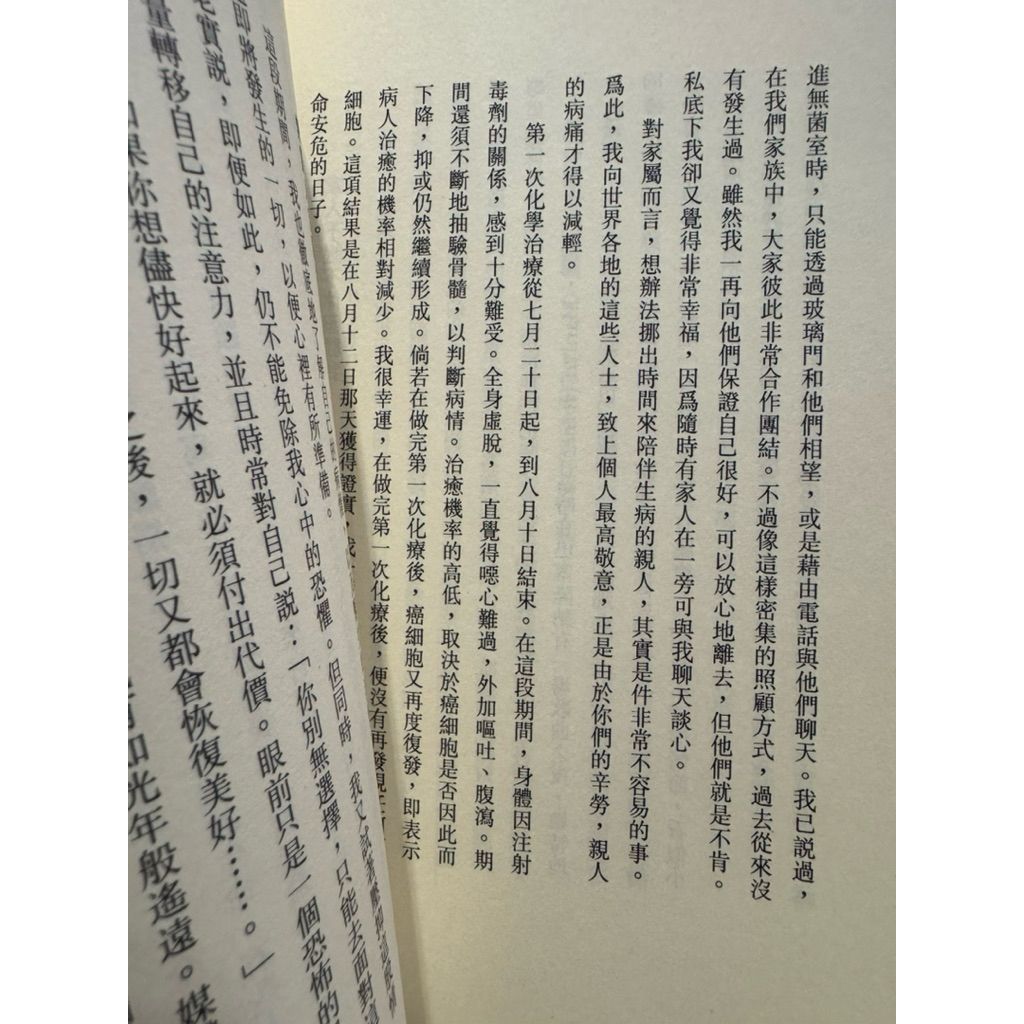 進無菌室時，只能透過玻璃門和他們相望，或是藉由電話與他們聊天。我已説過，
在我們家族中，大家彼此非常合作團結。不過像這樣密集的照顧方式，過去從來沒
有發生過。雖然我一再向他們保證自己很好，可以放心地離去，但他們就是不肯。
私底下我卻又覺得非常幸福，因爲隨時有家人在一旁可與我聊天談心。
對家屬而言，想辦法挪出時間來陪伴生病的親人，其實是件非常不容易的事。
爲此，我向世界各地的這些人士，致上個人最高敬意，正是由於你們的辛勞，親人
的病痛才得以減輕。
第一次化學治療從七月二十日起，到八月十日結束。在這段期間，身體因注射
毒劑的關係，感到十分難受。全身虛脫，一直覺得噁心難過，外加嘔吐、腹瀉。期
間還須不斷地抽驗骨髓，以判斷病情。治癒機率的高低，取決於癌細胞是否因此而
下降，抑或仍然繼續形成。倘若在做完第一次化療後，癌細胞又再度復發，即表示
病人治癒的機率相對減少。我很幸運，在做完第一次化療後，便沒有再發現任何
細胞。這項結果是在八月十二日那天獲得證實，我
命安危的日子。
這段期間，我也徹底地了解自己的
即將發生的一切，以便心裡有所準備。但同時，我又試著壓抑這
老實説，即便如此，仍不能免除我心中的恐懼。
量轉移自己的注意力，並且時常對自己説：「你別無選擇，只能去面對
如果你想儘快好起來，就必須付出代價。眼前只是一個恐怖的
之後，一切又都會恢復美好……。」
如光年般遙遠。媒